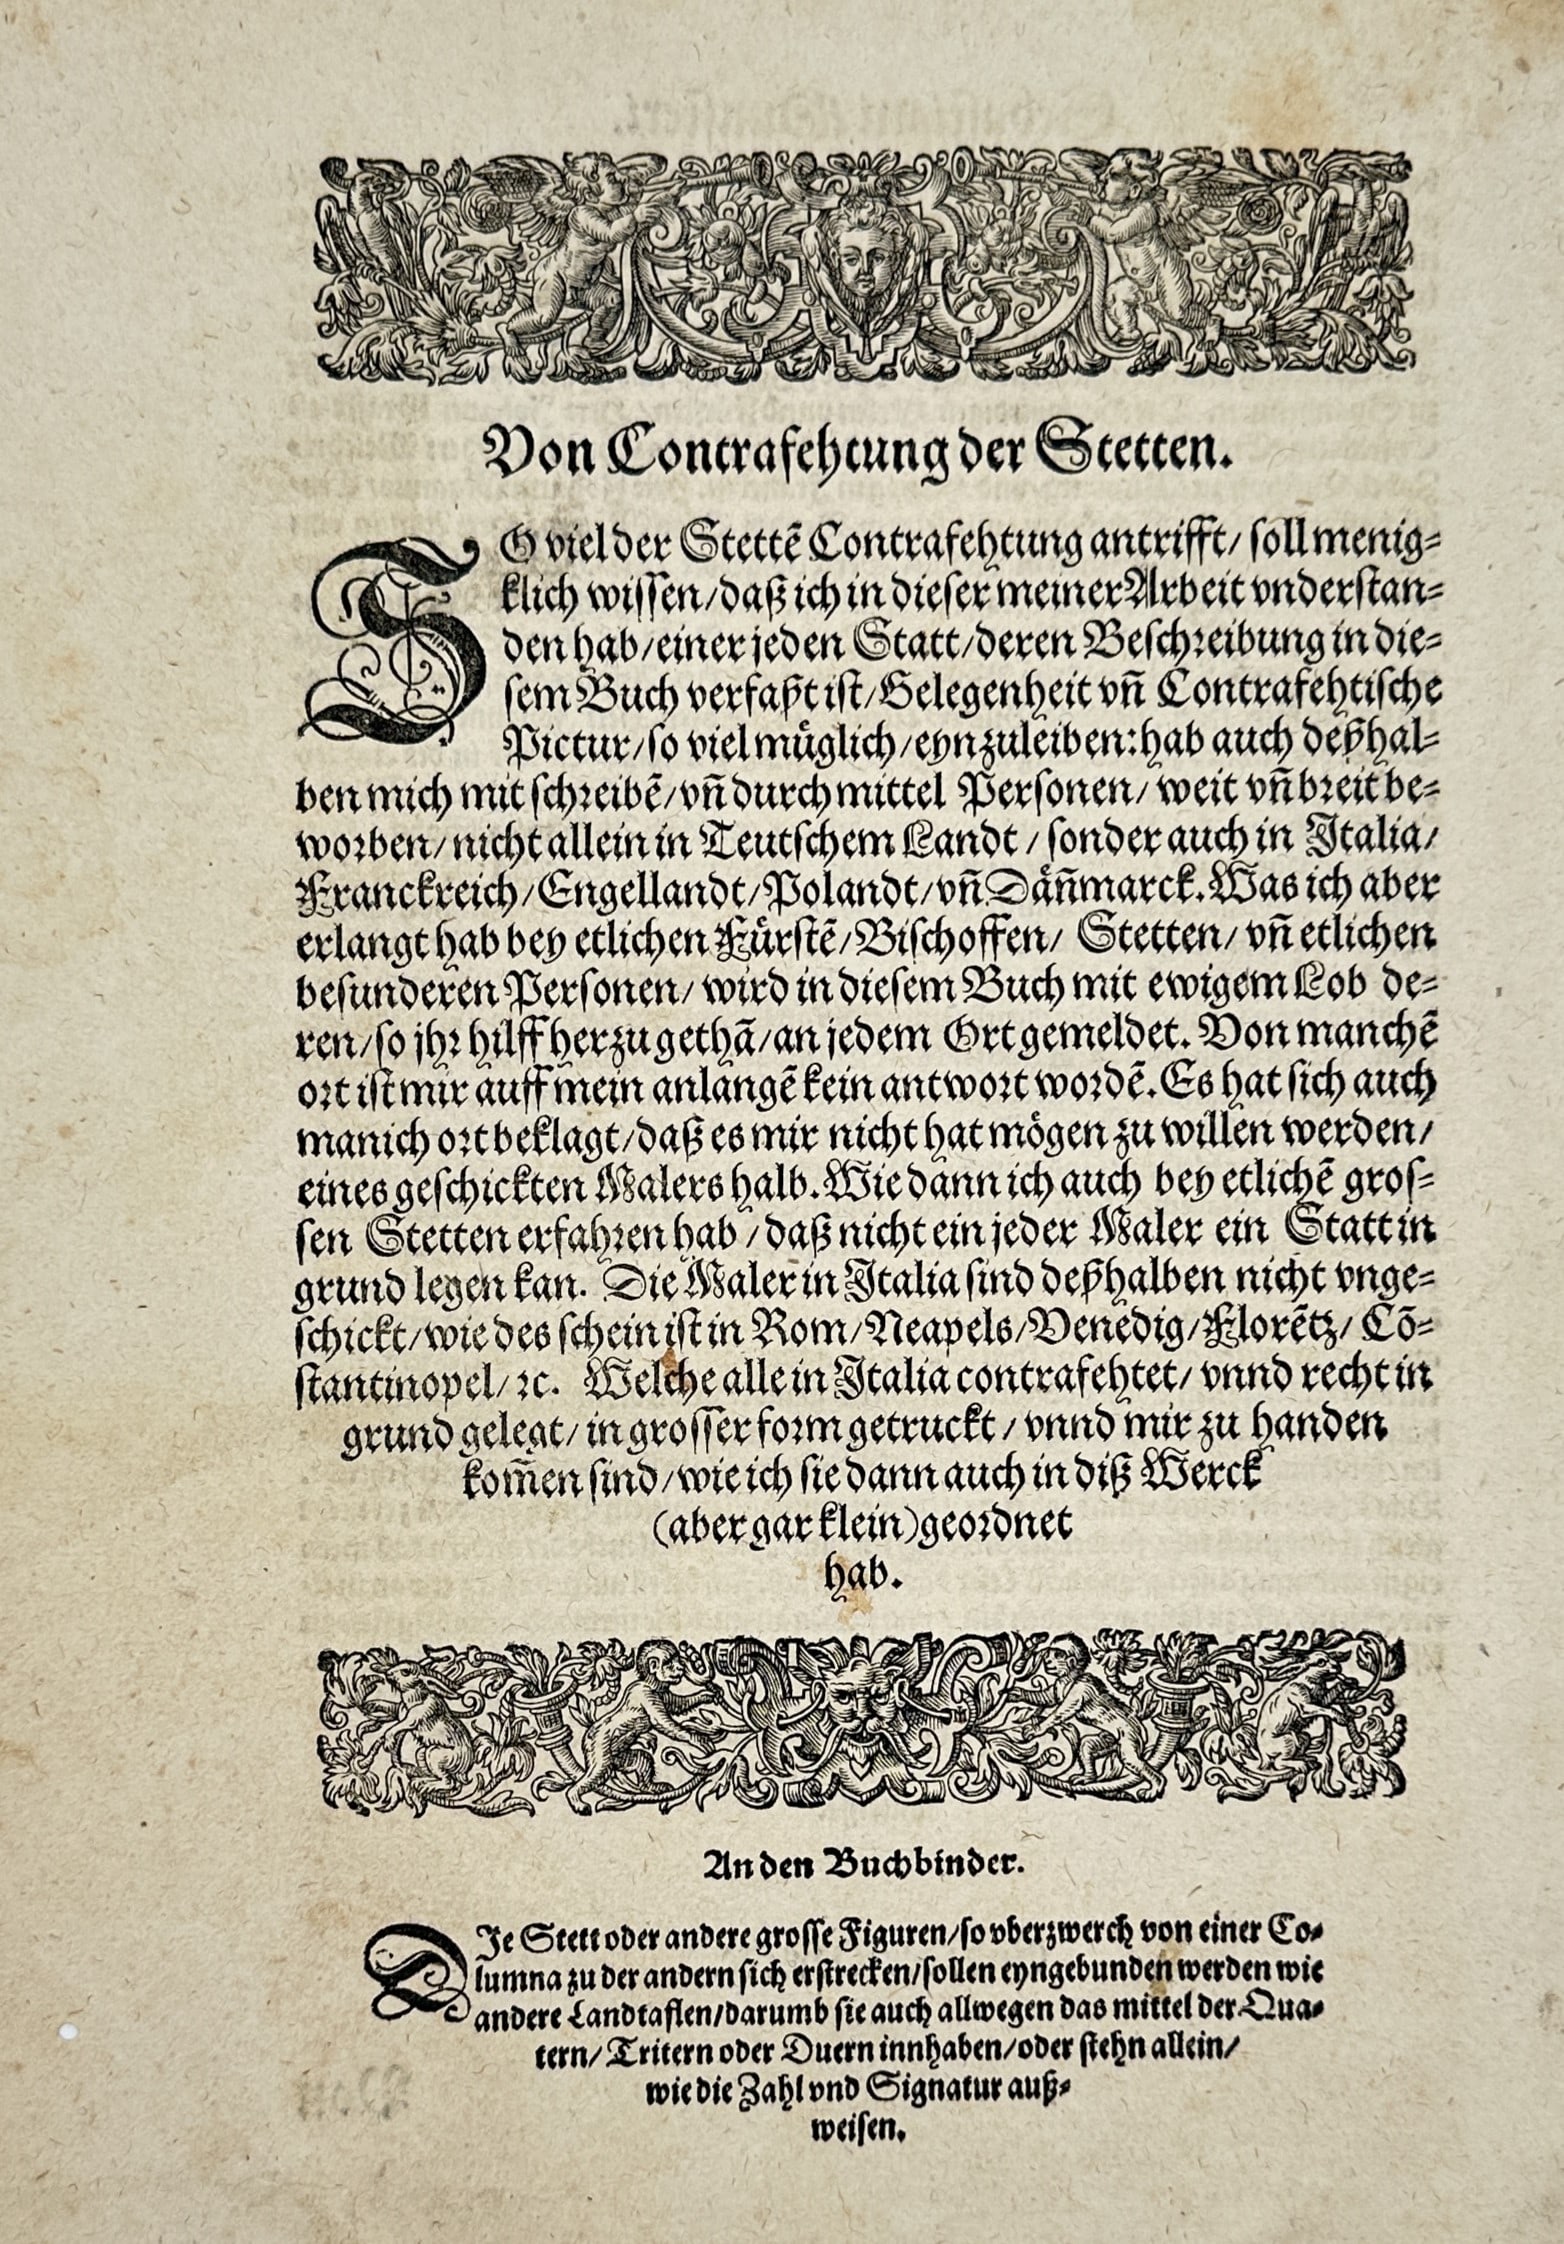 Von Contrafehtung der Stetten.
SO viel der Stettẽ Contrafehtung antrifft/ soll menig⸗
klich wissen/ daß ich in dieser meiner Arbeit vnderstan⸗
den hab/ einer jeden Statt/ deren Beschreibung in die⸗
sem Buch verfaßt ist/ Gelegenheit vñ Contrafehtische
Pictur/ so viel müglich/ eynzuleiben: hab auch deßhal⸗
ben mich mit schreibẽ/ vñ durch mittel Personen/ weit vñ breit be⸗
worben/ nicht allein in Teutschem Landt/ sonder auch in Italia/
Franckreich/ Engellandt/ Polandt/ vñ Däñmarck. Was ich aber
erlangt hab bey etlichen Fürstẽ/ Bischoffen/ Stetten/ vñ etlichen
besunderen Personen/ wird in diesem Buch mit ewigem Lob de⸗
ren/ so jhr hilff herzu gethã/ an jedem Ort gemeldet. Von manchẽ
ort ist mir auff mein anlangẽ kein antwort wordẽ. Es hat sich auch
manich ort beklagt/ daß es mir nicht hat mögen zu willen werden/
eines geschickten Malers halb. Wie dann ich auch bey etlichẽ gros⸗
sen Stetten erfahren hab/ daß nicht ein jeder Maler ein Statt in
grund legen kan. Die Maler in Italia sind deßhalben nicht vnge⸗
schickt/ wie des schein ist in Rom/ Neapels/ Venedig/ Florẽtz/ Cõ⸗
stantinopel/ ꝛc. Welche alle in Italia contrafehtet/ vnnd recht in
grund gelegt/ in grosser form getruckt/ vnnd mir zu handen
kom̃en sind/ wie ich sie dann auch in diß Werck
(aber gar klein) geordnet
hab.
An den Buchbinder.
DIe Stett oder andere grosse Figuren/ so vberzwerch von einer Co⸗
lumna zu der andern sich erstrecken/ sollen eyngebunden werden wie
andere Landtaflen/ darumb sie auch allwegen das mittel der Qua⸗
tern/ Tritern oder Duern innhaben/ oder stehn allein/
wie die Zahl vnd Signatur auß⸗
weisen.